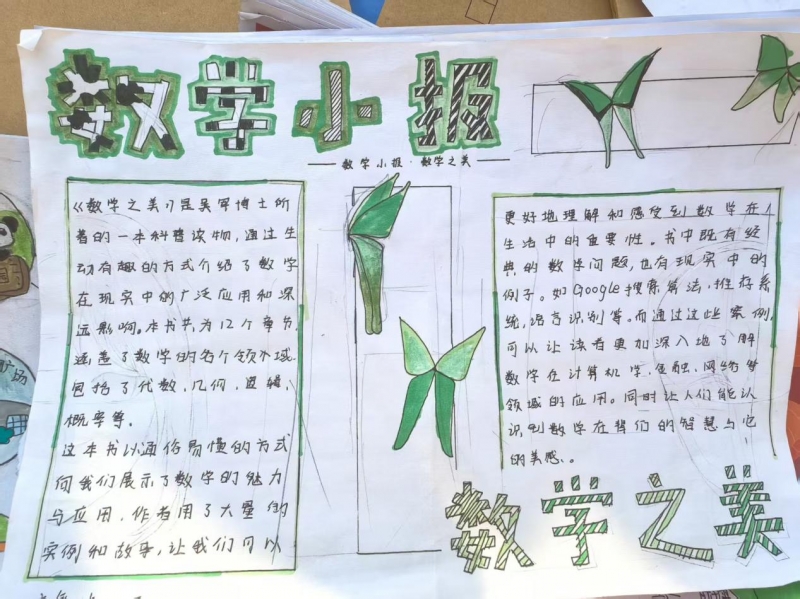 数学小报
数学小报·数学之美
《数学之美》是吴军博士所
著的一本科普读物,通过生
动有趣的方式介绍了数学
在现实中的广泛应用和深
远影响。本书共为12个章节,
涵盖了数学的各个领域,
包括了代数,几何,逻辑,
概率等。
这本书以通俗易懂的方式
向我们展示了数学的魅力
与应用,作者用了大量的
实例和故事,让我们可以
更好地理解和感受到数学在
生活中的重要性。书中既有经
典的数学问题,也有现实中的
例子。如Google搜索算法、推荐系
统,语音识别等。而通过这些案例,
可以让读者更加深入地了解
数学在计算机学,金融、网络等
领域的应用。同时让人们能认
识到数学在背们的智慧与它
的美感。
数学之美
广场